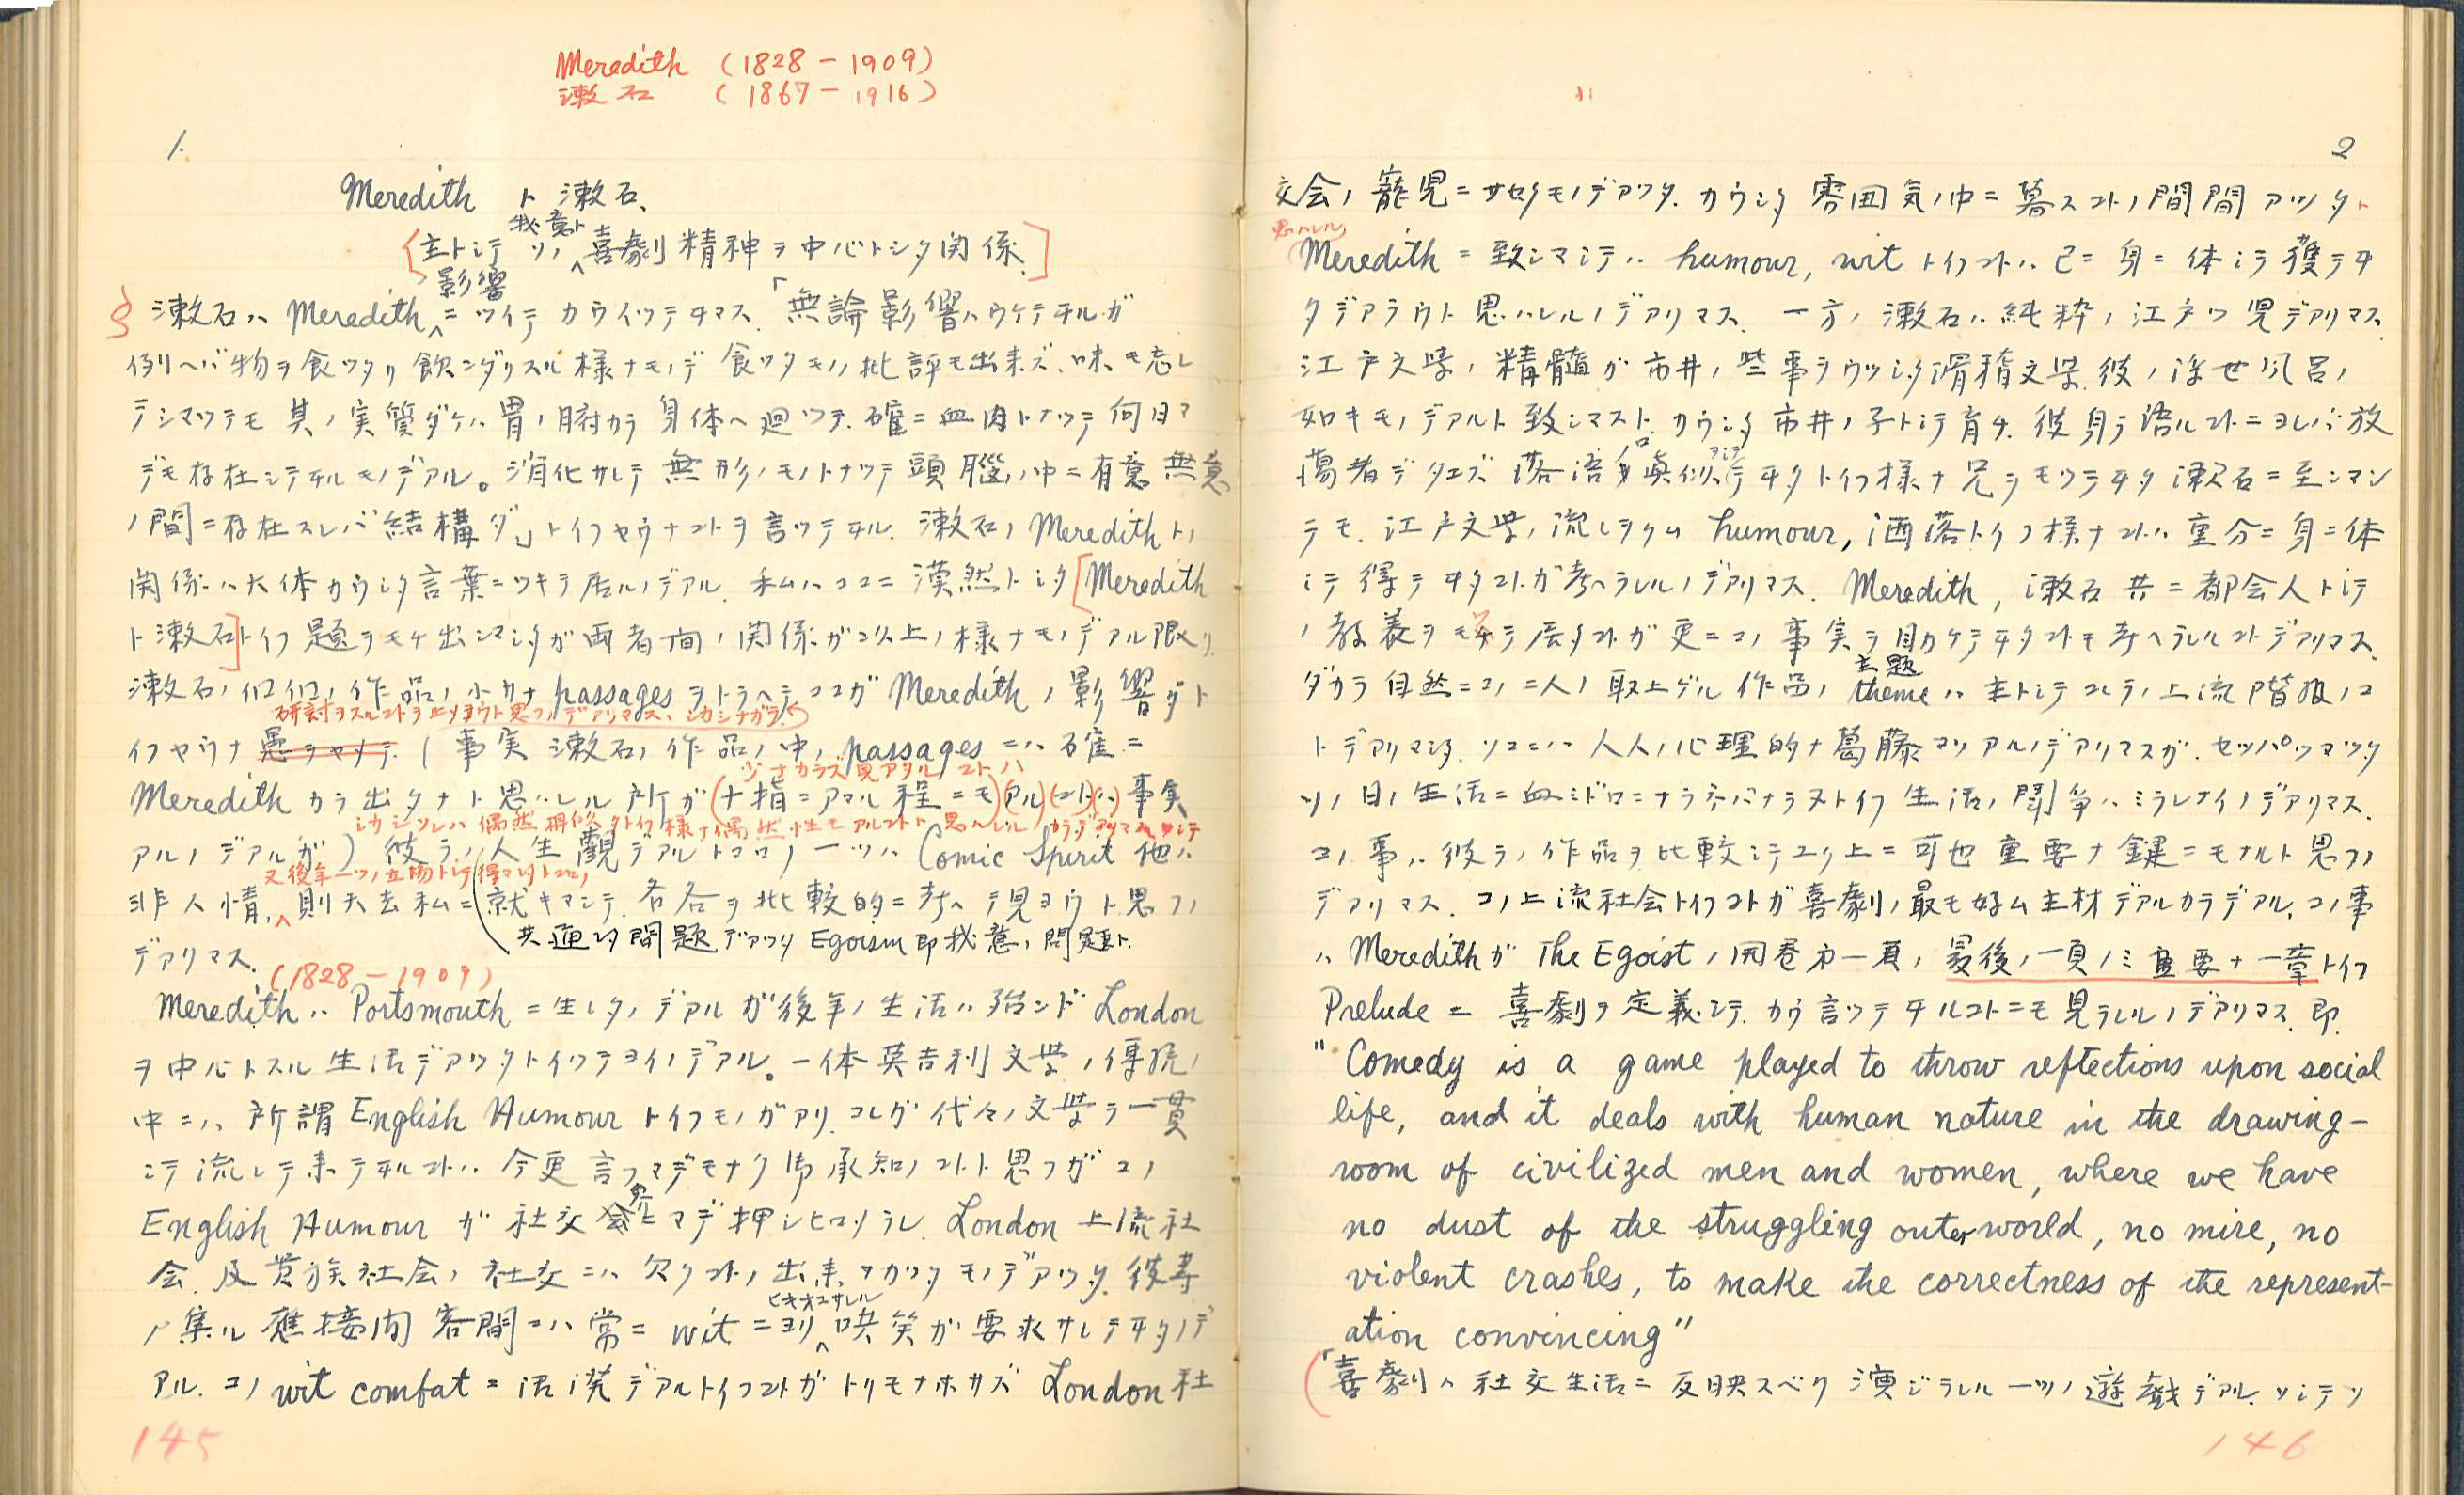 Meredith (1828-1909)
漱石 (1867-1916)
1.
Meredith ト 漱石、
我意ト
主トシテ ソノ 喜劇精神ヲ中心トシタ関係
影響
漱石ハ Meredith ニツイテ カウイツテヰマス.「無論影響ハウケテヰルガ
例ヘバ物ヲ食ツタリ飲ンダリスル様ナモノデ食ツタモノノ批評モ出来ズ、味モ忘レ
テシマツテモ其ノ実質ダケハ胃ノ腑カラ身体ヘ廻ツテ確ニ血肉トナツテ何日マ
デモ存在シテヰルモノデアル。消化サレテ無形ノモノトナツテ頭脳ノ中ニ有意無意
ノ間ニ存在スレバ結構ダ」トイフヤウナコトヲ言ツテヰル. 漱石ノ Meredith トノ
関係ハ大体カウシタ言葉ニツキテ居ルノデアル. 私ハココニ漠然トシタ[Meredith
ト漱石]トイフ題ヲモチ出シマシタガ両者間ノ関係ガ以上ノ様ナモノデアル限リ.
漱石ノ作品ノ小サナ passages ヲトラヘテココガ Meredith ノ影響ダト
研討ヲスルコトヲ止メヨウト思フノデアリマス、シカシナガラ
イフヤウナ愚ヲヤメテ (事実漱石ノ作品ノ中ノ passages ニハ確ニ
少ナカラズ見アタルコトハ
Meredith カラ出タナト思ハレル所ガ(十指ニアマル程ニモ)(アル)(コト)(ハ)事実
シカシソレハ偶然 タトイフ様ナ偶然性モアルコトト思ハレルカラデアリマス
アルノデアルガ) 彼ラノ人生観デアルトコロノ一ツハ Comic Spirit 他ハ
又後年一ツノ立場トシテ得マシタトコロノ
非人情、則天去私ニ就キマシテ. 各各ヲ比較的ニ考ヘテ見ヨウト思フノ
共通的問題デアツタ Egoism 即我意ノ問題ト.
デアリマス.
(1828-1909)
Meredith ハ Portsmouth ニ生レタノデアルガ後年ノ生活ハ殆ンド London
ヲ中心トスル生活デアツタトイツテヨイノデアル。一体英吉利文学ノ傳統ノ
中ニハ所謂 English Humour トイフモノガアリ.コレガ代々ノ文学ヲ一貫
シテ流レテ来テヰルコトハ今更言フマデモナク御承知ノコトト思フガコノ
English Humour ガ社交界ニマデ押シヒロメラレ. London 上流社
会及貴族社会ノ社交ニハ欠クコトノ出来ナカツタモノデアツタ. 彼等
ヒキオコサレル
ノ集ル應接間客間ニハ常ニ wit ニヨリ 哄笑ガ要求サレテヰタノデ
アル. コノ wit combat ニ活溌デアルトイフコトガトリモナホサズ London 社
145
2
交会ノ寵児ニサセタモノデアツタ. カウシタ雰囲気ノ中ニ暮スコトノ間間アツタト
思ハレル
Meredith ニ致シマシテハ humour, wit トイフコトハ已ニ身ニ体シテ獲テヰ
タデアラウト思ハレルノデアリマス. 一方ノ漱石ハ純粋ノ江戸ツ児デアリマス.
江戸文学ノ精髄ガ市井ノ些事ヲウツシタ滑稽文学. 彼ノ浮世風呂ノ
如キモノデアルト致シマスト. カウシタ市井ノ子トシテ育チ. 彼自ラ語ルコトニヨレバ放
蕩者デタエズ落語ノ真似ヲシテヰタトイフ様ナ兄ヲモツテヰタ漱石ニ至シマシ
テモ. 江戸文学ノ流レヲクム humour, 洒落トイフ様ナコトハ重分ニ身ニ体
シテ得テヰタコトガ考ヘラレルノデアリマス. Meredith, 漱石共ニ都会人トシテ
ノ教養ヲモツテ居タコトガ更ニコノ事実ヲ助ケテヰタコトモ考ヘラレルコトデアリマス.
主題
ダカラ自然ニコノ二人ノ取上ゲル作品ノ theme ハ主トシテコレラノ上流階級ノコ
トデアリマシタ. ソコニハ人人ノ心理的ナ葛藤コソアルノデアリマスガ. セツパツマツタ
ソノ日ノ生活ニ血ミドロニナラネバナラヌトイフ生活ノ闘争ハミラレナイノデアリマス.
コノ事ハ彼ラノ作品ヲ比較シテユク上ニ可也重要ナ鍵ニモナルト思フノ
デアリマス. コノ上流社会トイフコトガ喜劇ノ最モ好ム主材デアルカラデアル. コノ事
ハ Meredith ガ The Egoist ノ開巻第一頁ノ最後ノ一頁ノミ重要ナ一章トイフ
Prelude ニ喜劇ヲ定義シテカウ言ツテヰルコトニモ見ラレルノデアリマス. 即
"Comedy is a game played to throw reflections upon social
life, and it deals with human nature in the drawing-
room of civilized men and women, where we have
no dust of the struggling outer world, no mire, no
violent crashes, to make the correctness of the represent-
ation convincing"
「喜劇ハ社交生活ニ反映スベク演ジラレル一ツノ遊戯デアル. ソシテソ
146